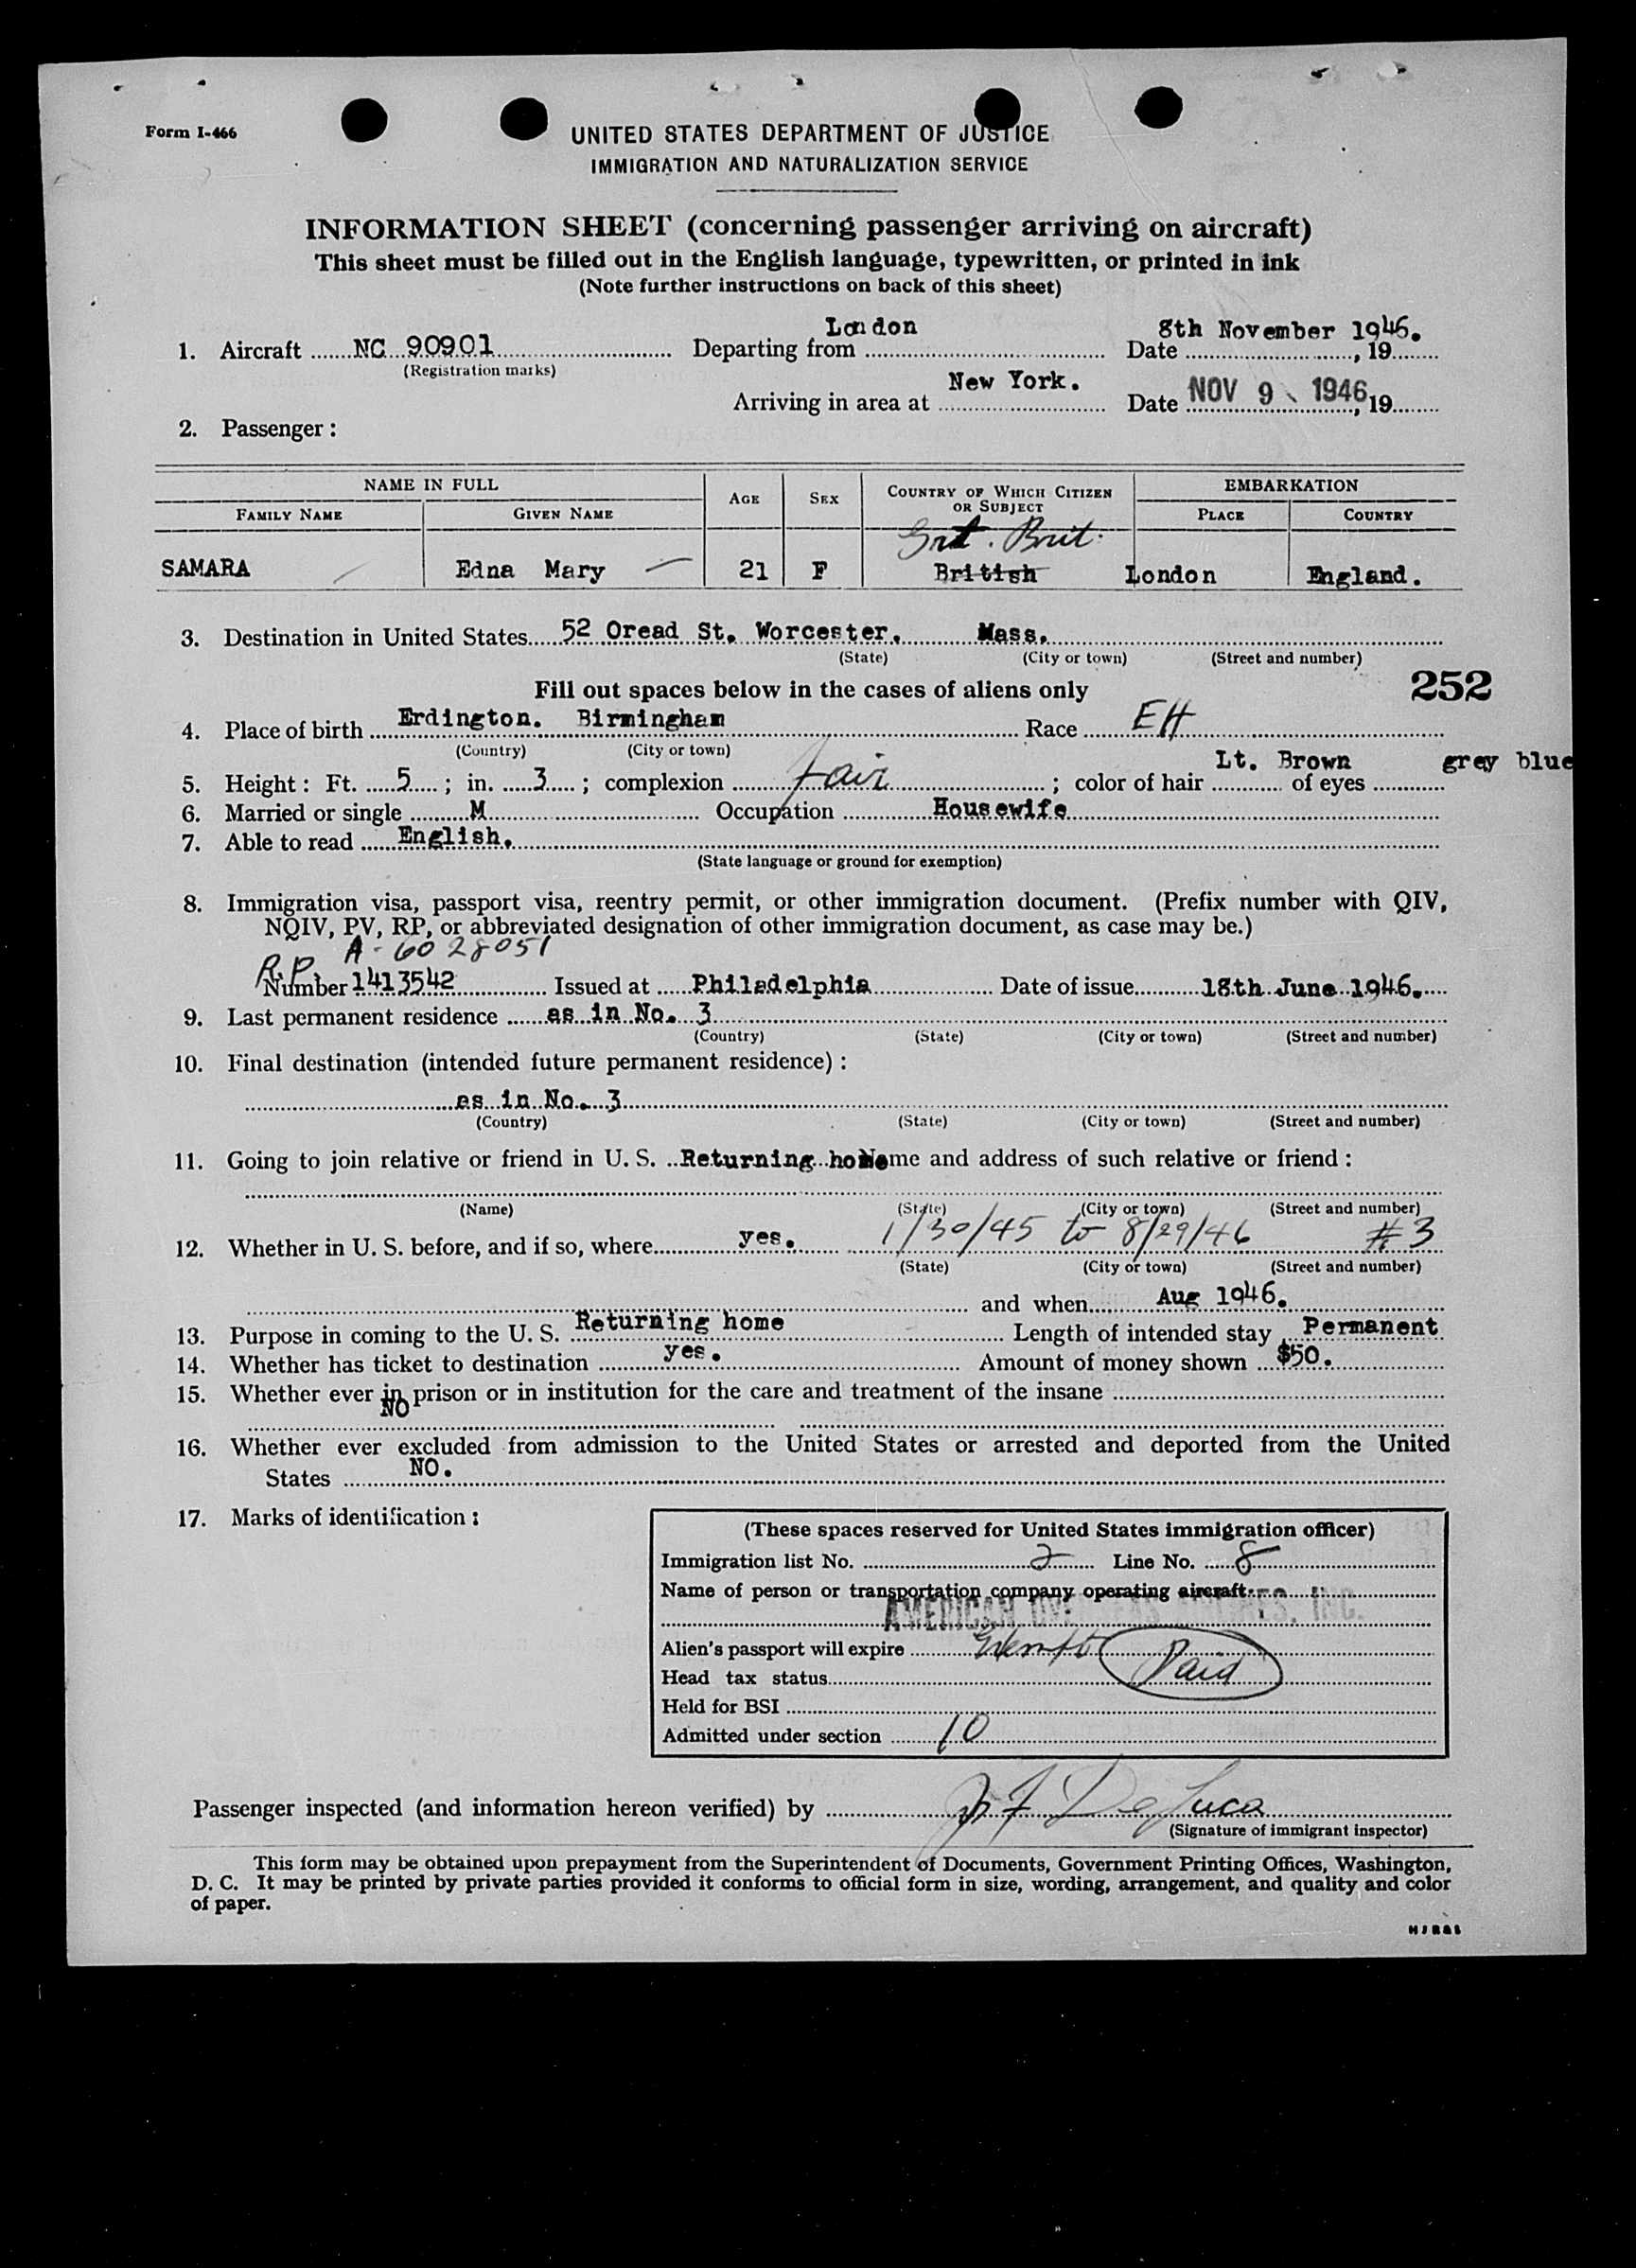 Form I-466
UNITED STATES DEPARTMENT OF JUSTICE
IMMIGRATION AND NATURALIZATION SERVICE
INFORMATION SHEET (concerning passenger arriving on aircraft)
This sheet must be filled out in the English language, typewritten, or printed in ink
(Note further instructions on back of this sheet)
1. Aircraft NC 90901 Departing from London Date 8th November 1946. , 19
(Registration marks)
Arriving in area at New York. Date NOV 9 1946 , 19
2. Passenger :
NAME IN FULL AGE SEX COUNTRY OF WHICH CITIZEN OR SUBJECT EMBARKATION
FAMILY NAME GIVEN NAME PLACE COUNTRY
Grt. Brit.
SAMARA Edna Mary 21 F British London England.
3. Destination in United States 52 Oread St. Worcester. Mass.
(State) (City or town) (Street and number)
Fill out spaces below in the cases of aliens only 252
4. Place of birth Erdington. Birmingham Race EH
(Country) (City or town)
5. Height : Ft. 5 ; in. 3 ; complexion fair ; color of hair Lt. Brown of eyes grey blue
6. Married or single M Occupation Housewife
7. Able to read English.
(State language or ground for exemption)
8. Immigration visa, passport visa, reentry permit, or other immigration document. (Prefix number with QIV,
NQIV, PV, RP, or abbreviated designation of other immigration document, as case may be.)
A-6028051
R.P. Number 1413542 Issued at Philadelphia Date of issue 18th June 1946.
9. Last permanent residence as in No. 3
(Country) (State) (City or town) (Street and number)
10. Final destination (intended future permanent residence) :
as in No. 3
(Country) (State) (City or town) (Street and number)
11. Going to join relative or friend in U. S. Returning home Name and address of such relative or friend :
(Name) (State) (City or town) (Street and number)
12. Whether in U. S. before, and if so, where yes. 1/30/45 to 8/29/46 #3
(State) (City or town) (Street and number)
and when Aug 1946.
13. Purpose in coming to the U. S. Returning home Length of intended stay Permanent
14. Whether has ticket to destination yes. Amount of money shown $50.
15. Whether ever in prison or in institution for the care and treatment of the insane
NO
16. Whether ever excluded from admission to the United States or arrested and deported from the United
States NO.
17. Marks of identification :
(These spaces reserved for United States immigration officer)
Immigration list No. 2 Line No. 8
Name of person or transportation company operating aircraft
AMERICAN OVERSEAS AIRLINES, INC.
Alien's passport will expire Exempt
Head tax status Paid
Held for BSI
Admitted under section 10
Passenger inspected (and information hereon verified) by J F DeLuca
(Signature of immigrant inspector)
This form may be obtained upon prepayment from the Superintendent of Documents, Government Printing Offices, Washington,
D. C. It may be printed by private parties provided it conforms to official form in size, wording, arrangement, and quality and color
of paper.